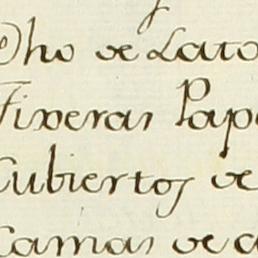 Dho de Lato
Tixeras Pap
Cubiertos de
Camas de a